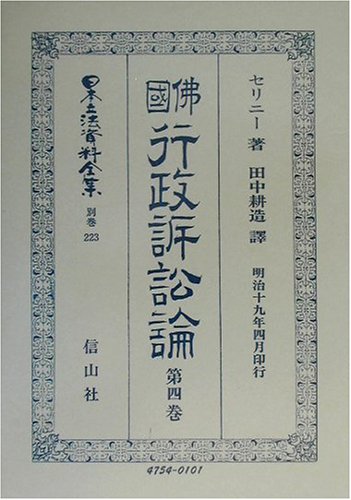 セリニー 著 田中耕造 譯 明治十九年四月印行
佛國 行政訴訟論 第四巻
日本立法資料全集 別巻 223 信山社
4754-0101